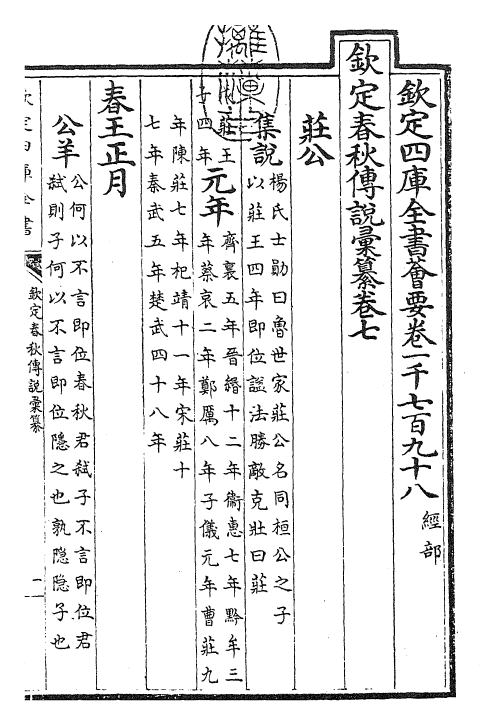 欽定四庫全書薈要卷一千七百九十八 經部
欽定春秋傳說彙纂卷七
莊公
集說
楊氏士勛曰魯世家莊公名同桓公之子
以莊王四年即位諡法勝敵克壯曰莊
莊王
四年
元年
齊襄五年晉緡十二年衞惠七年黔牟三
年蔡哀二年鄭厲八年子儀元年曹莊九
年陳莊七年杞靖十一年宋莊十
七年秦武五年楚武四十八年
春王正月
公羊
公何以不言即位春秋君弒子不言即位君
弒則子何以不言即位隱之也孰隱隱子也
欽定四庫全書
欽定春秋傳說彙纂
一